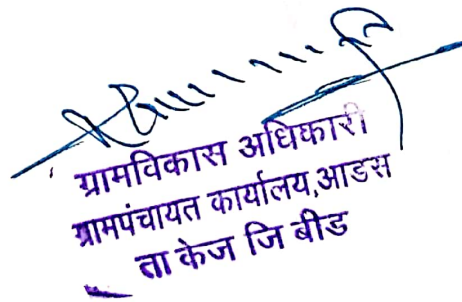 ग्रामविकास अधिकारी
ग्रामपंचायत कार्यालय,आडस
ता केज जि बीड